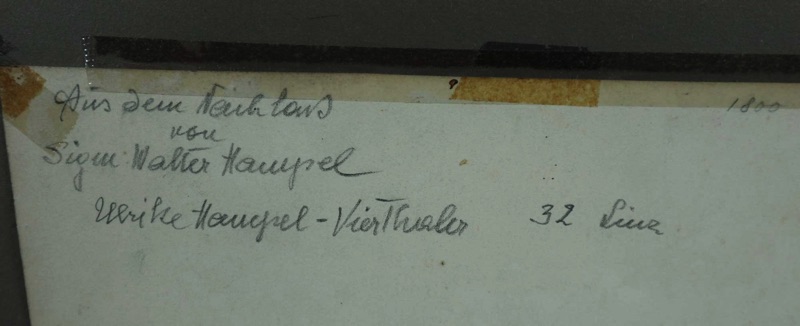 Aus dem Nachlaß
1800
von
Sigm. Walter Hampel
Ulrike Hampel-Vierthaler 32 Linz